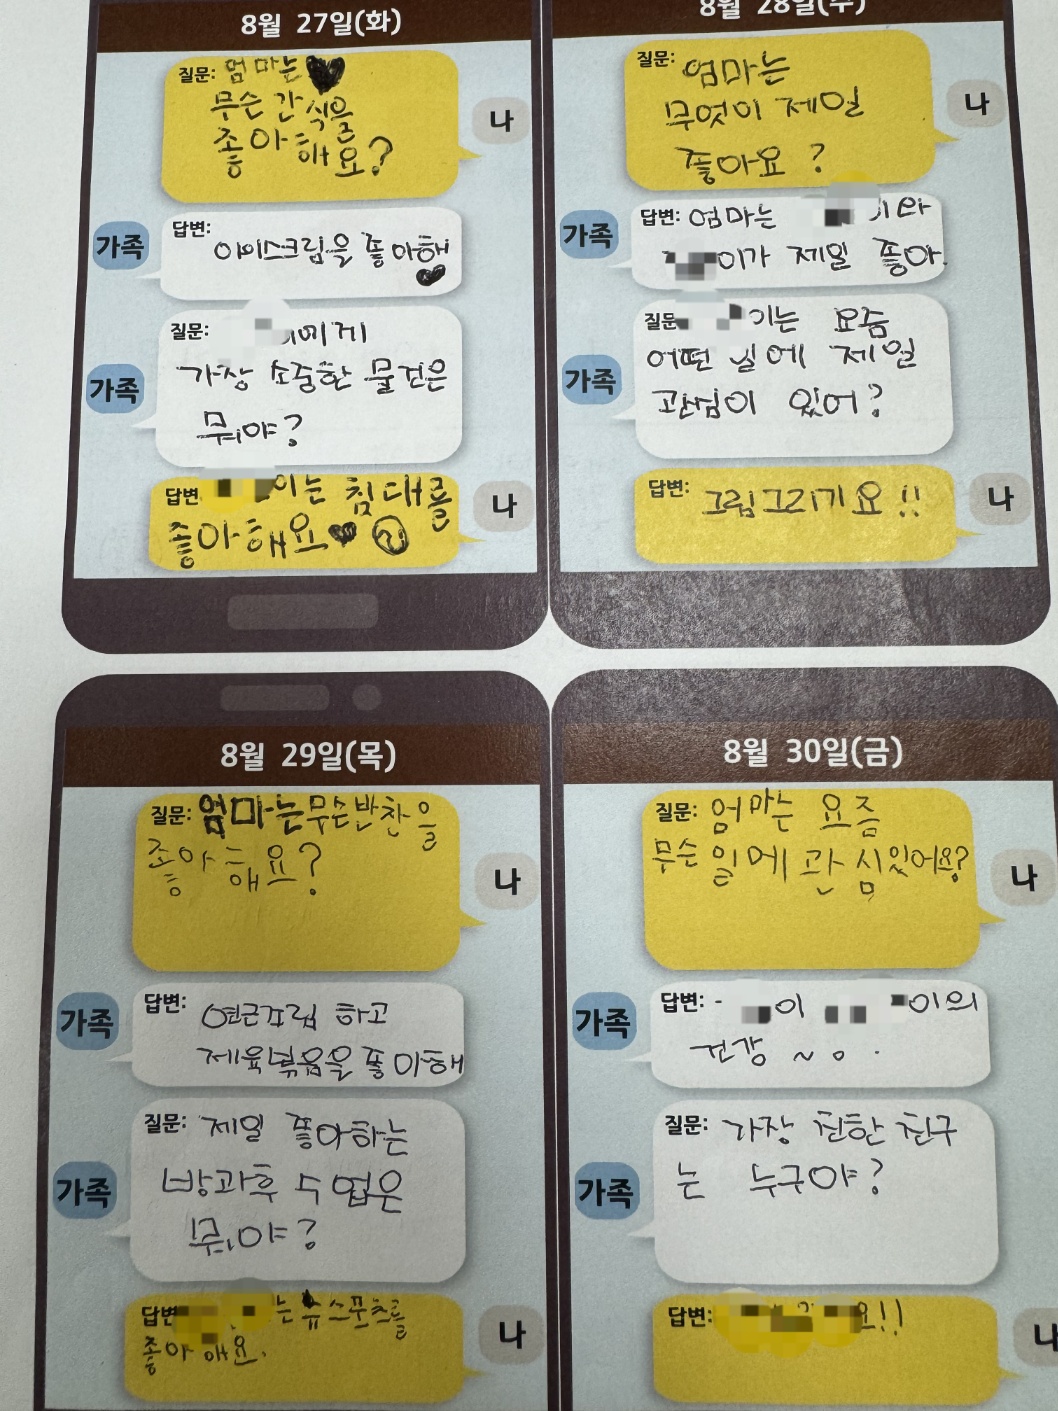 8월 27일(화)
질문: 엄마는
무슨 간식을
좋아해요?
나
가족
답변:
아이스크림을 좋아해
가족
질문: 이에게
가장 소중한 물건은
뭐야?
답변 이는 침대를
좋아해요
나
8월 28일(수)
질문: 엄마는
무엇이 제일
좋아요?
나
가족
답변: 엄마는 이랑
이가 제일 좋아.
가족
질문 이는 요즘
어떤 일에 제일
관심이 있어?
답변: 그림그리기요!!
나
8월 29일(목)
질문: 엄마는 무슨반찬을
좋아해요?
나
가족
답변:
연근조림 하고
제육볶음을 좋아해
가족
질문: 제일 좋아하는
방과후 수업은
뭐야?
답변 는 뉴스포츠를
좋아해요.
나
8월 30일(금)
질문: 엄마는 요즘
무슨 일에 관심있어요?
나
가족
답변: 이 이의
건강~
가족
질문: 가장 친한 친구
는 누구야?
답변: 요!!
나